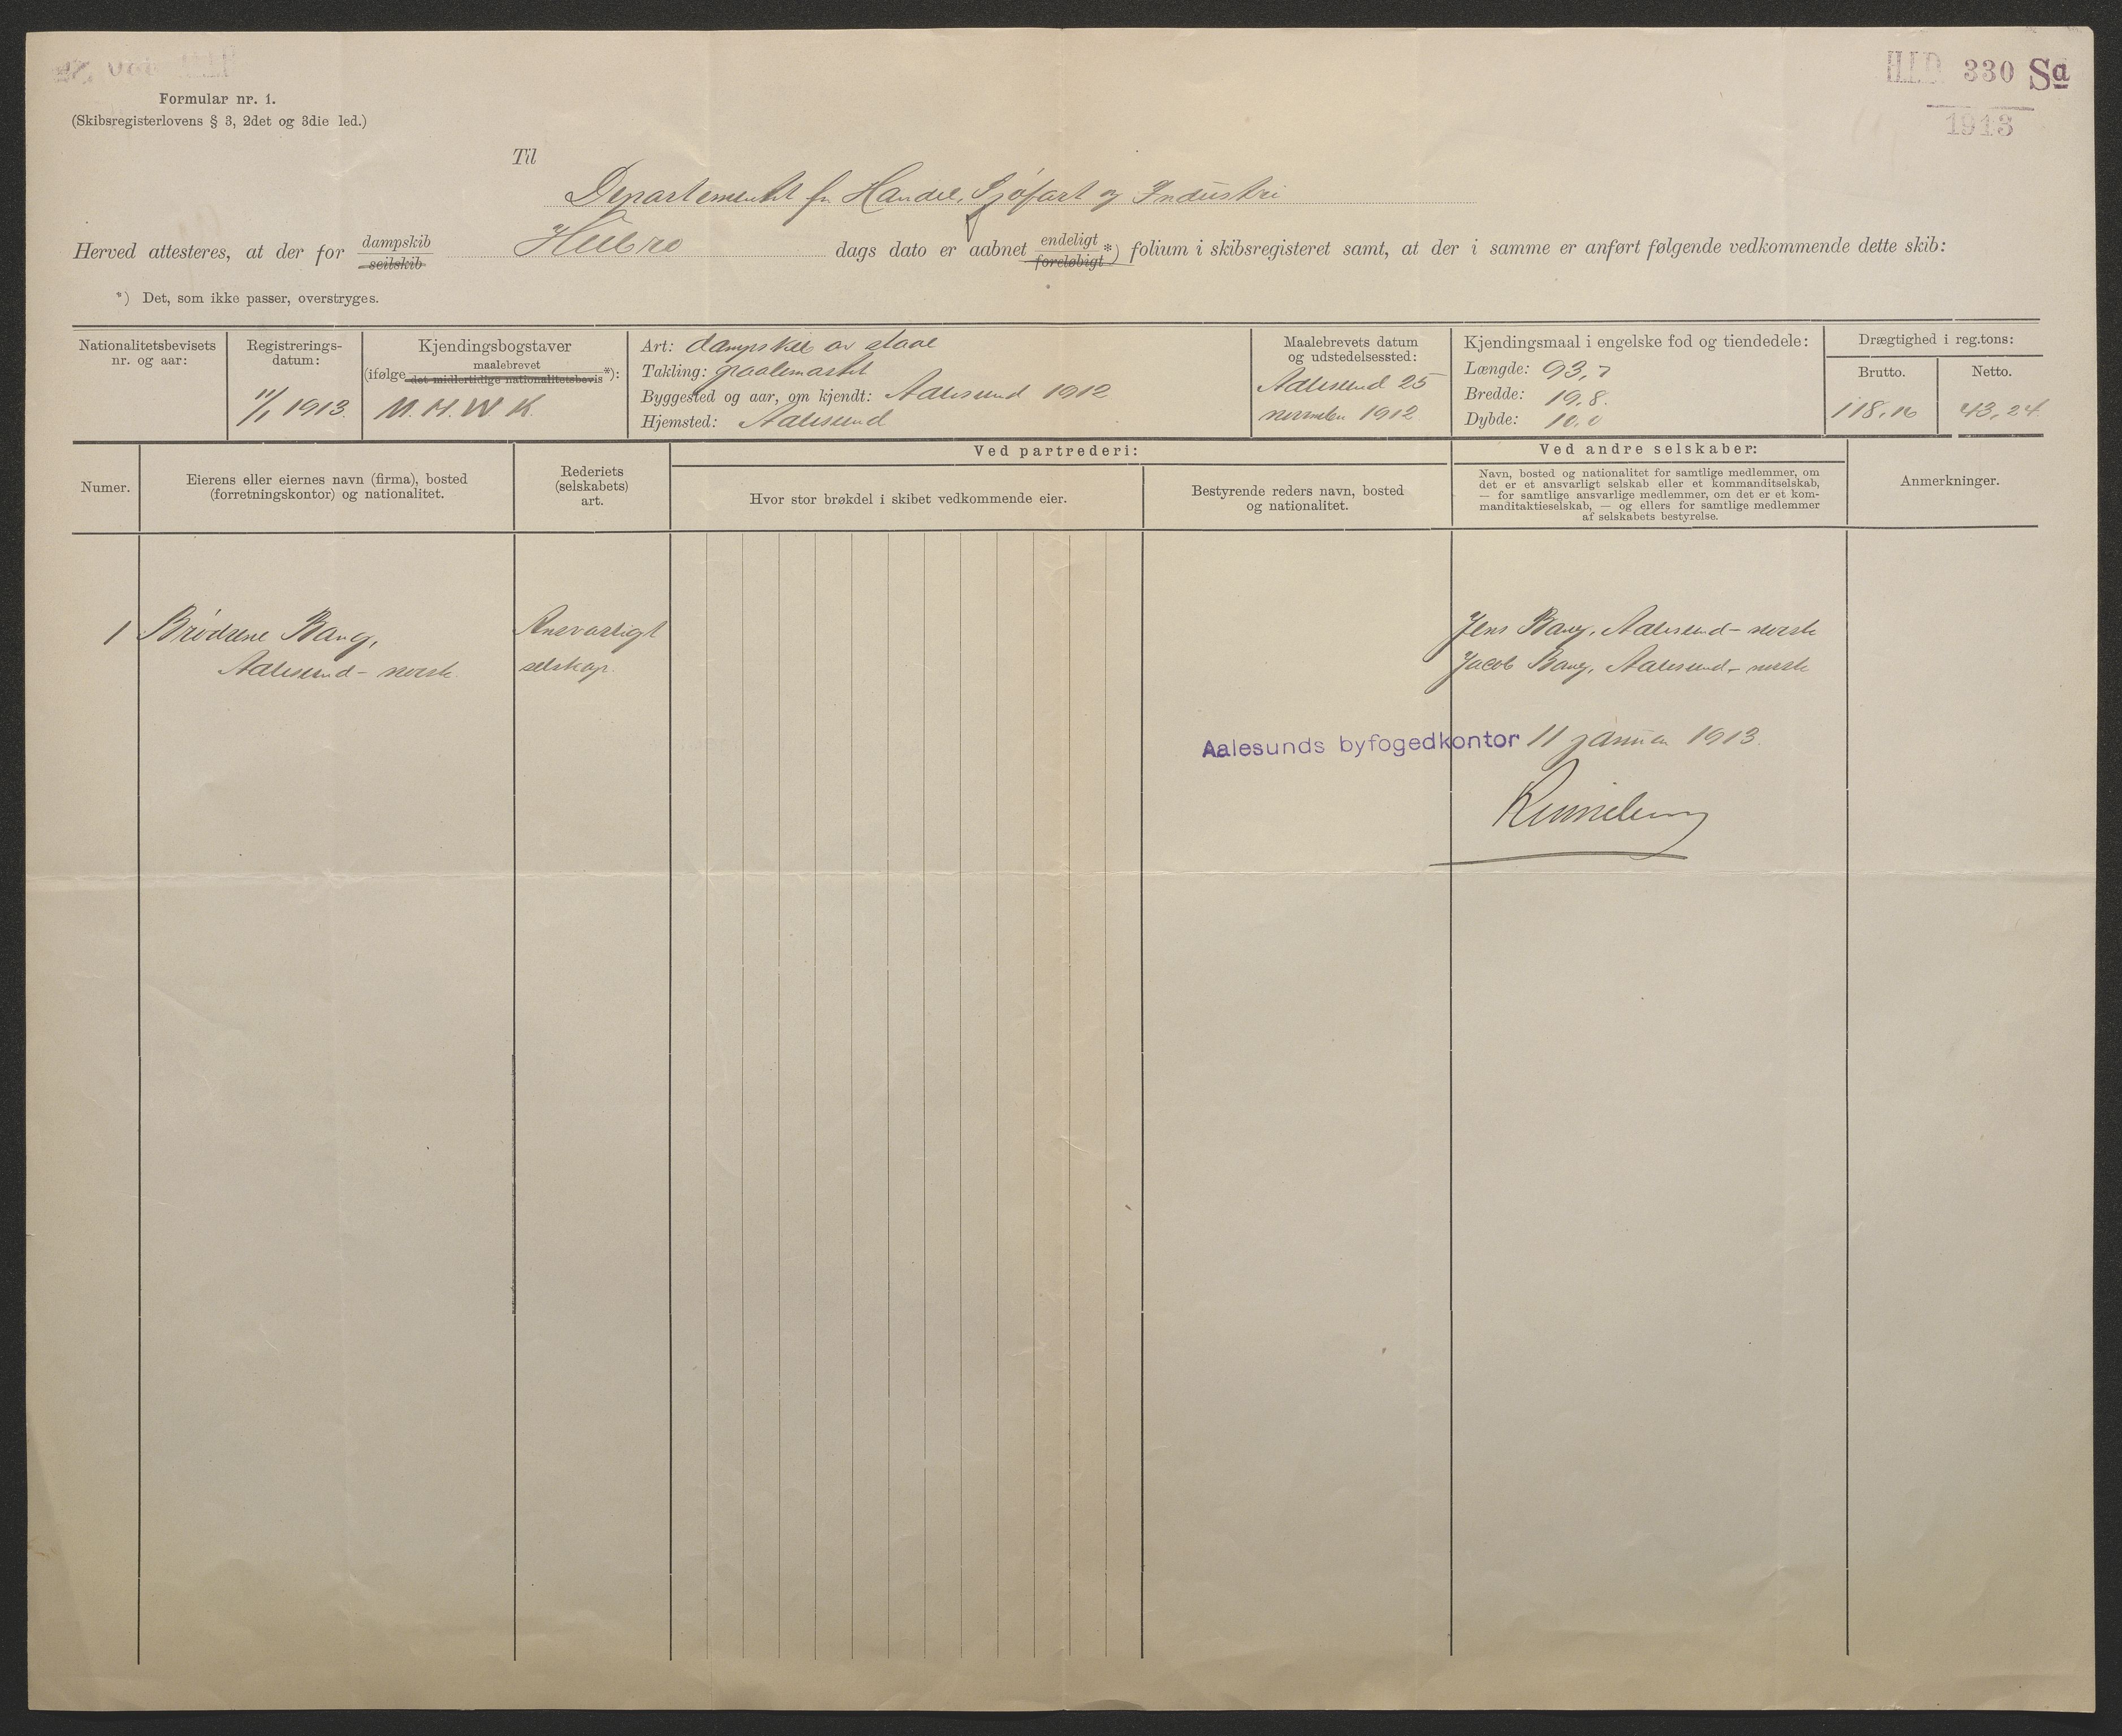 H.I.D. 330 Sa
1913
Formular nr. 1.
(Skibsregisterlovens § 3, 2det og 3die led.)
Til
Departementet for Handel, Sjøfart og Industri
Herved attesteres, at der for dampskib seilskib Hubro dags dato er aabnet endeligt foreløbigt *) folium i skibsregisteret samt, at der i samme er anført følgende vedkommende dette skib:
*) Det, som ikke passer, overstryges.
Nationalitetsbevisets nr. og aar:
Registrerings-datum:
11/1 1913.
Kjendingsbogstaver
(ifølge maalebrevet det midlertidige nationalitetsbevis *):
M. H. W. K.
Art: dampskib av staal
Takling: gaalemastet
Byggested og aar, om kjendt: Aalesund 1912
Hjemsted: Aalesund
Maalebrevets datum
og udstedelsessted:
Aalesund 25
november 1912
Kjendingsmaal i engelske fod og tiendedele:
Længde: 93,7
Bredde: 19,8.
Dybde: 10,0
Drægtighed i reg.tons:
Brutto. Netto.
118,16 43,24
Numer.
Eierens eller eiernes navn (firma), bosted
(forretningskontor) og nationalitet.
Rederiets
(selskabets)
art.
Ved partrederi:
Hvor stor brøkdel i skibet vedkommende eier.
Bestyrende reders navn, bosted
og nationalitet.
Ved andre selskaber:
Navn, bosted og nationalitet for samtlige medlemmer, om
det er et ansvarligt selskab eller et kommanditselskab,
— for samtlige ansvarlige medlemmer, om det er et kom-
manditaktieselskab, — og ellers for samtlige medlemmer
af selskabets bestyrelse.
Anmerkninger.
1 Brødrene Bang, Ansvarligt Jens Bang, Aalesund - norsk
Aalesund - norsk. selskap. Jacob Bang, Aalesund - norsk
Aalesunds byfogedkontor 11 januar 1913.